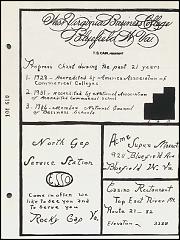 The Virginia Business College
Bluefield, W. Va.
Progress Chart during the past 21 years
1. 1928 - Accredited by America Association of
Commercial Colleges
2. 1931 - Accredited by National Association
of Accredited Commercial School
3. 1936 - Member National Council
of Business Schools
North Gap
Service Station
ESSO
Come in often we
like to see you and
To serve you
Rocky Gap Va.
Acme
Super Market
928 Bluefield Ave
Bluefield W. Va.
Casino Restaurant
Top East River Mt.
Route 21-52
Elevation